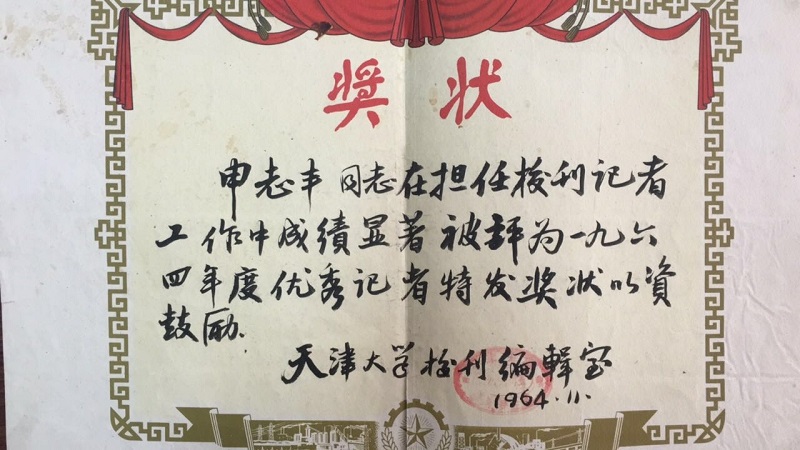 奖状
申志丰同志在担任校刊记者
工作中成绩显著被评为一九六
四年度优秀记者特发奖状以资
鼓励.
天津大学校刊编辑室
1964.11.